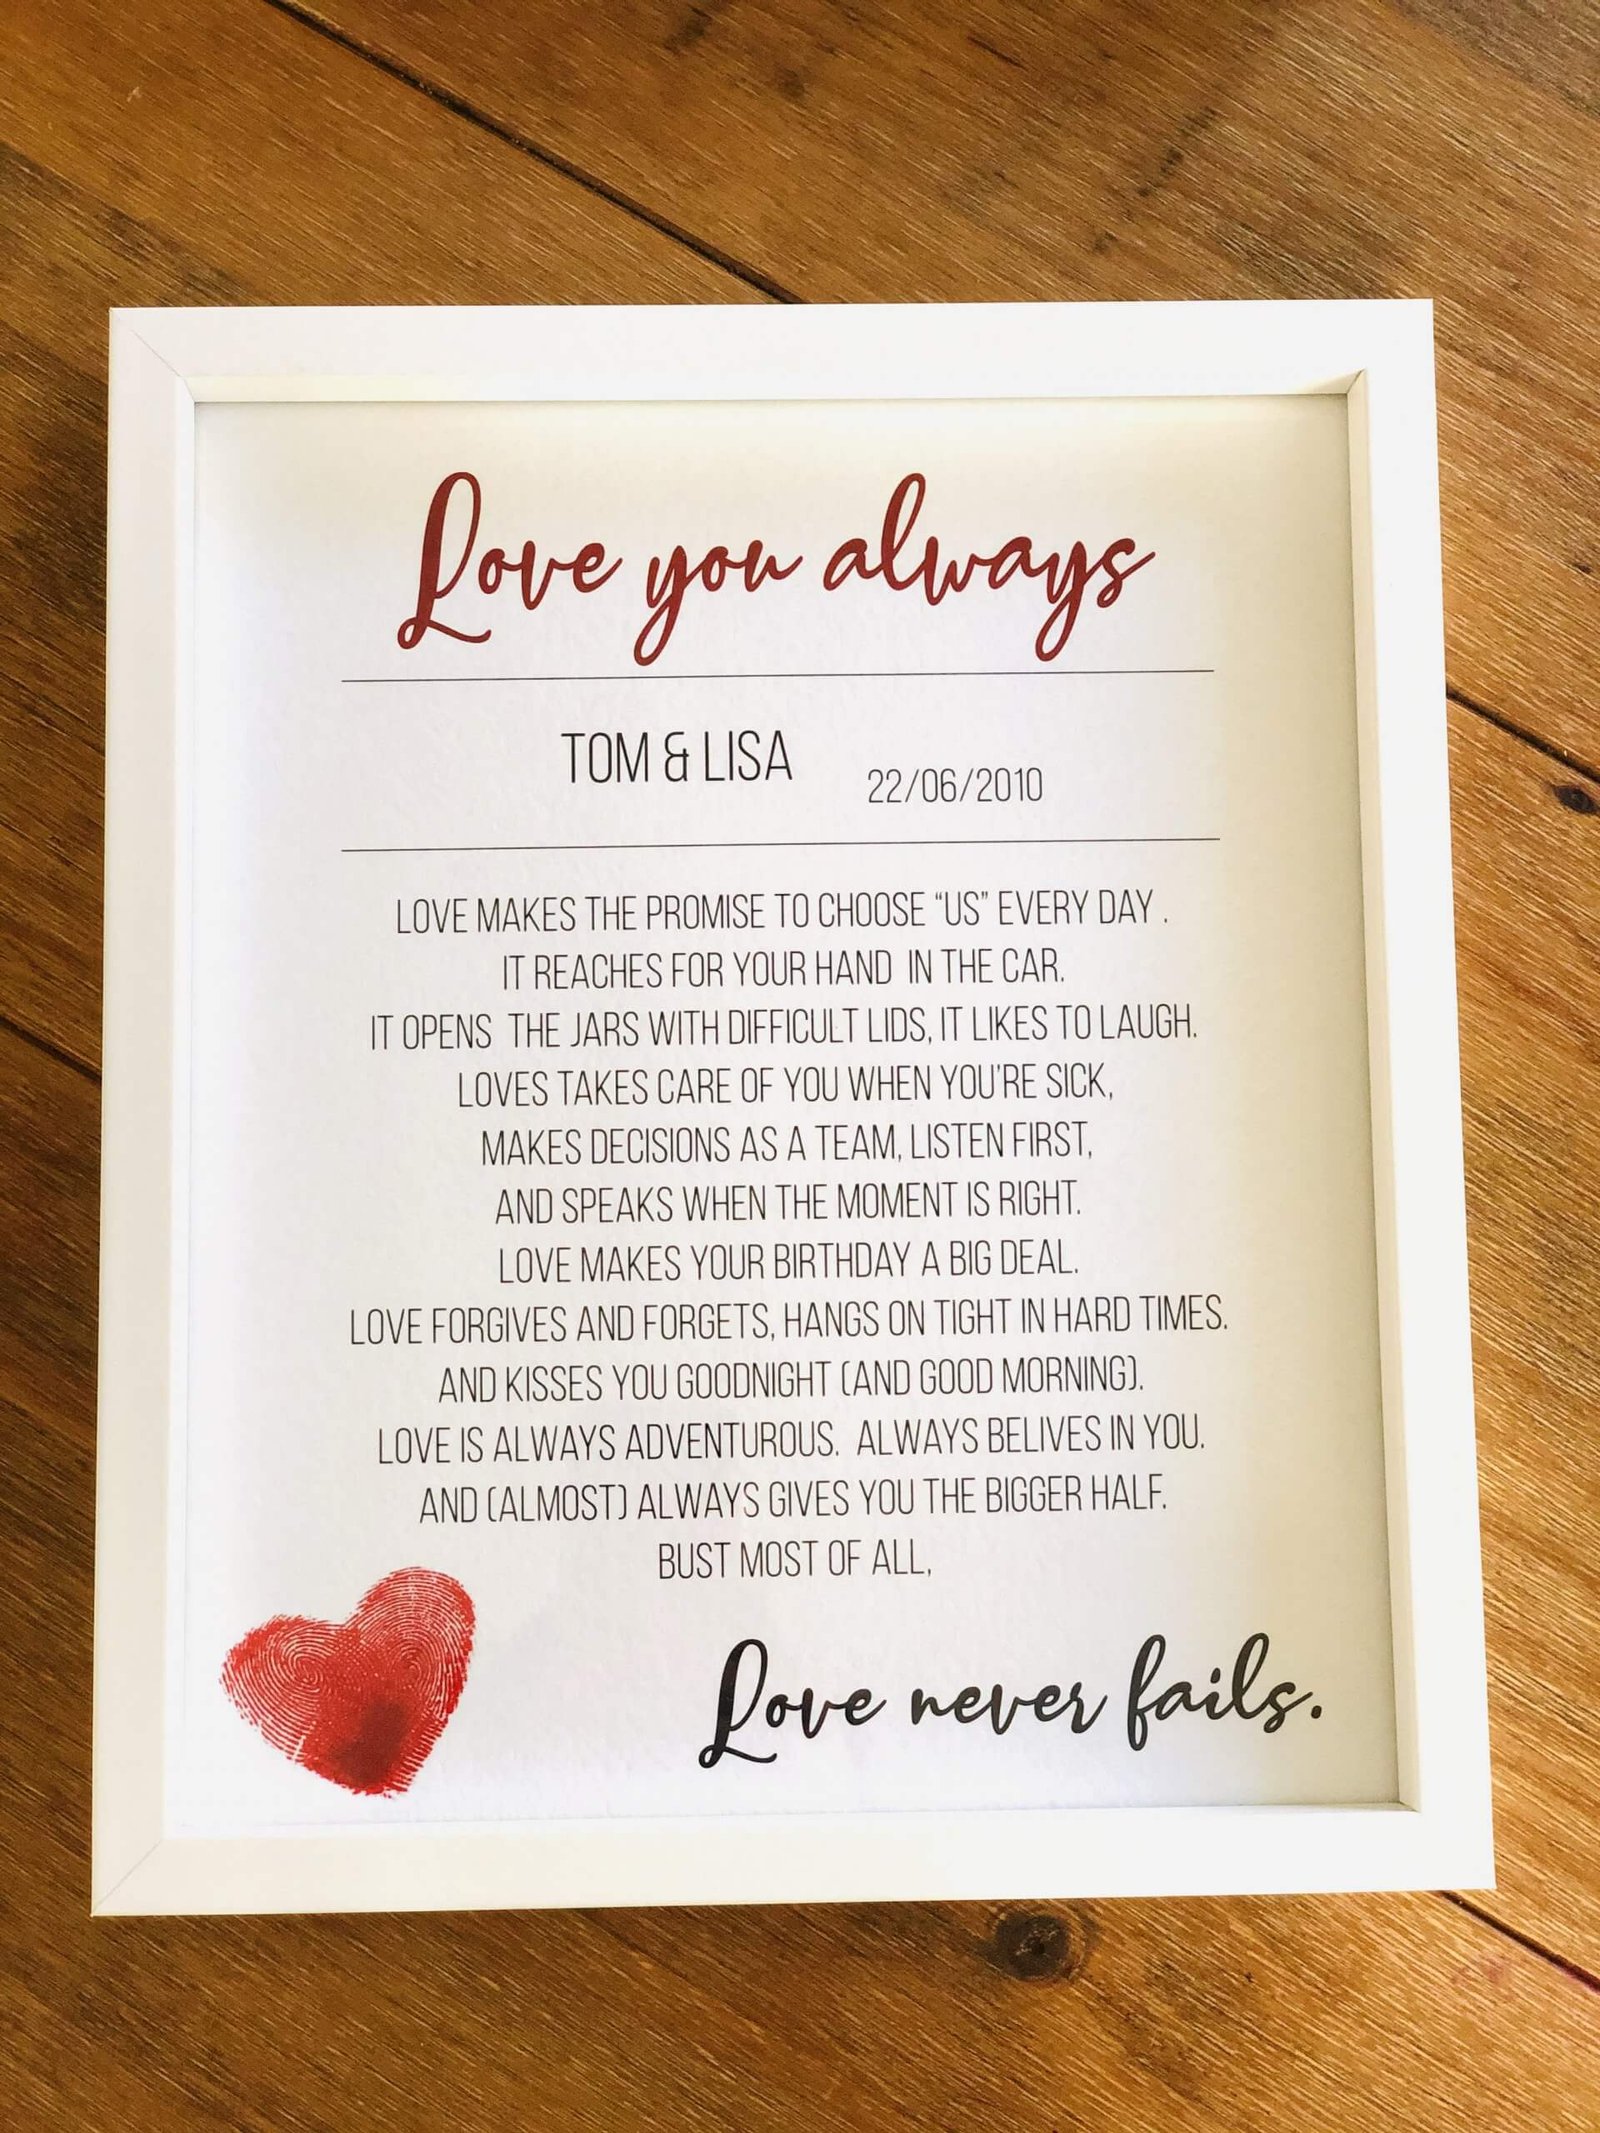 Love you always
TOM & LISA 22/06/2010
LOVE MAKES THE PROMISE TO CHOOSE “US” EVERY DAY .
IT REACHES FOR YOUR HAND IN THE CAR.
IT OPENS THE JARS WITH DIFFICULT LIDS, IT LIKES TO LAUGH.
LOVES TAKES CARE OF YOU WHEN YOU'RE SICK,
MAKES DECISIONS AS A TEAM, LISTEN FIRST,
AND SPEAKS WHEN THE MOMENT IS RIGHT.
LOVE MAKES YOUR BIRTHDAY A BIG DEAL.
LOVE FORGIVES AND FORGETS, HANGS ON TIGHT IN HARD TIMES.
AND KISSES YOU GOODNIGHT (AND GOOD MORNING).
LOVE IS ALWAYS ADVENTUROUS. ALWAYS BELIVES IN YOU.
AND (ALMOST) ALWAYS GIVES YOU THE BIGGER HALF.
BUST MOST OF ALL,
Love never fails.